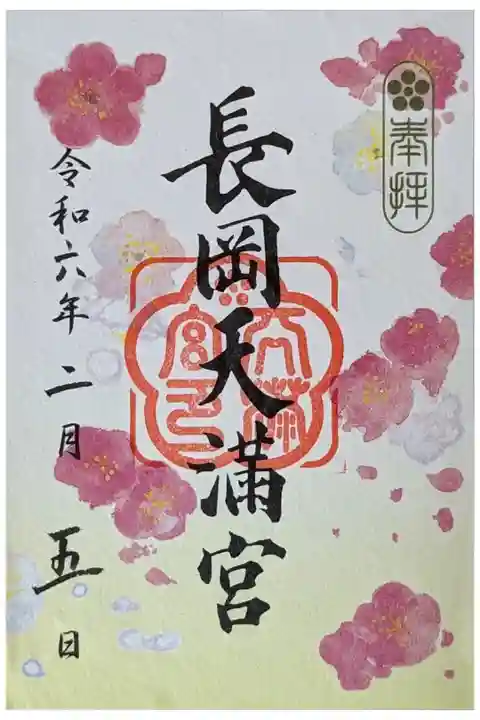 奉拝
長岡天満宮
令和六年二月五日